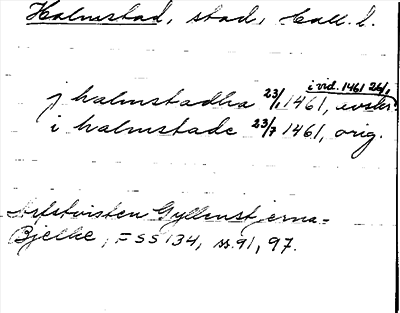 Halmstad, stad, Hall. l.
i vid. 1461 24/1
j halmstadha 23/1 1461, avskr.
i halmstade 23/7 1461, orig.
Arfstvisten Gyllenstjerna-
Bjelke, FSS 134, ss. 91, 97.